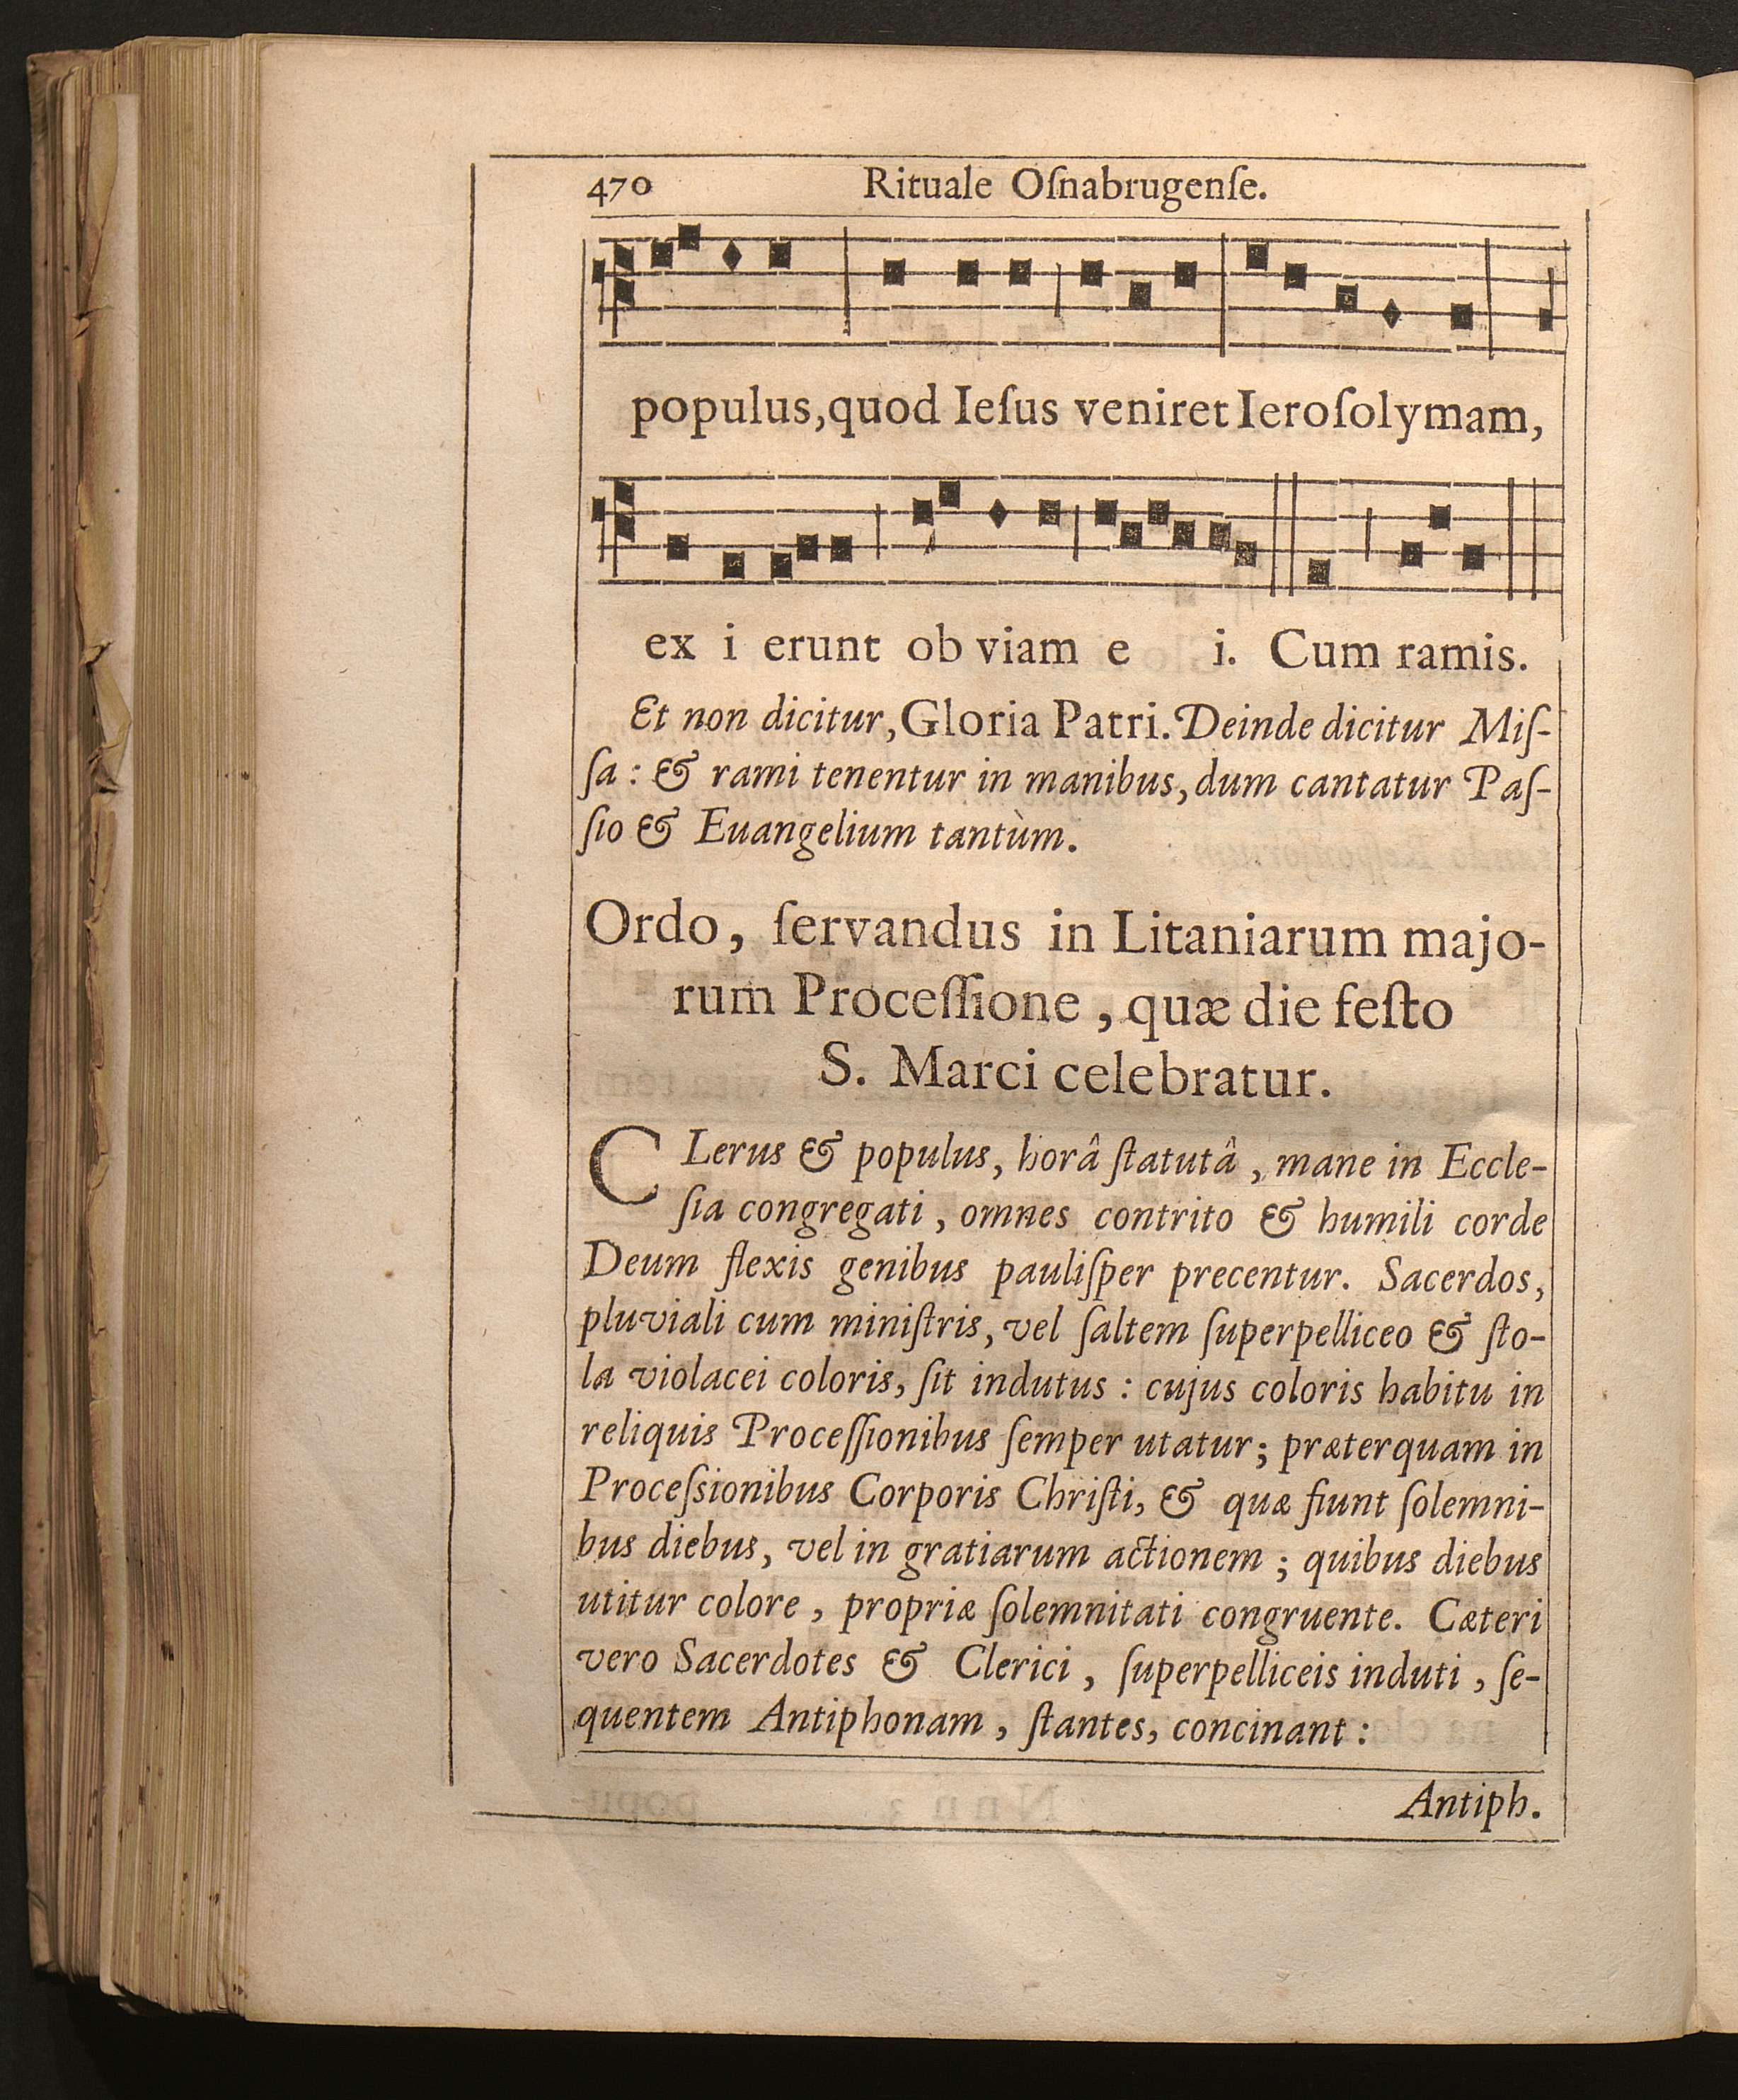 470 Rituale Oſnabrugenſe.
populus,quod Ieſus veniret Ieroſolymam,
ex i erunt ob viam e i. Cum ramis.
Et non dicitur, Gloria Patri. Deinde dicitur Miſ-
ſa: & rami tenentur in manibus, dum cantatur Paſ-
ſio & Euangelium tantùm.
Ordo, ſervandus in Litaniarum majo-
rum Proceſſione, quæ die feſto
S. Marci celebratur.
CLerus & populus, horâ ſtatutâ, mane in Eccle-
ſia congregati, omnes contrito & humili corde
Deum flexis genibus pauliſper precentur. Sacerdos,
pluviali cum miniſtris, vel ſaltem ſuperpelliceo & ſto-
la violacei coloris, ſit indutus: cujus coloris habitu in
reliquis Proceſſionibus ſemper utatur; præterquam in
Proceſsionibus Corporis Chriſti, & quæ fiunt ſolemni-
bus diebus, vel in gratiarum actionem; quibus diebus
utitur colore, propriæ ſolemnitati congruente. Cæteri
vero Sacerdotes & Clerici, ſuperpelliceis induti, ſe-
quentem Antiphonam, ſtantes, concinant:
Antiph.